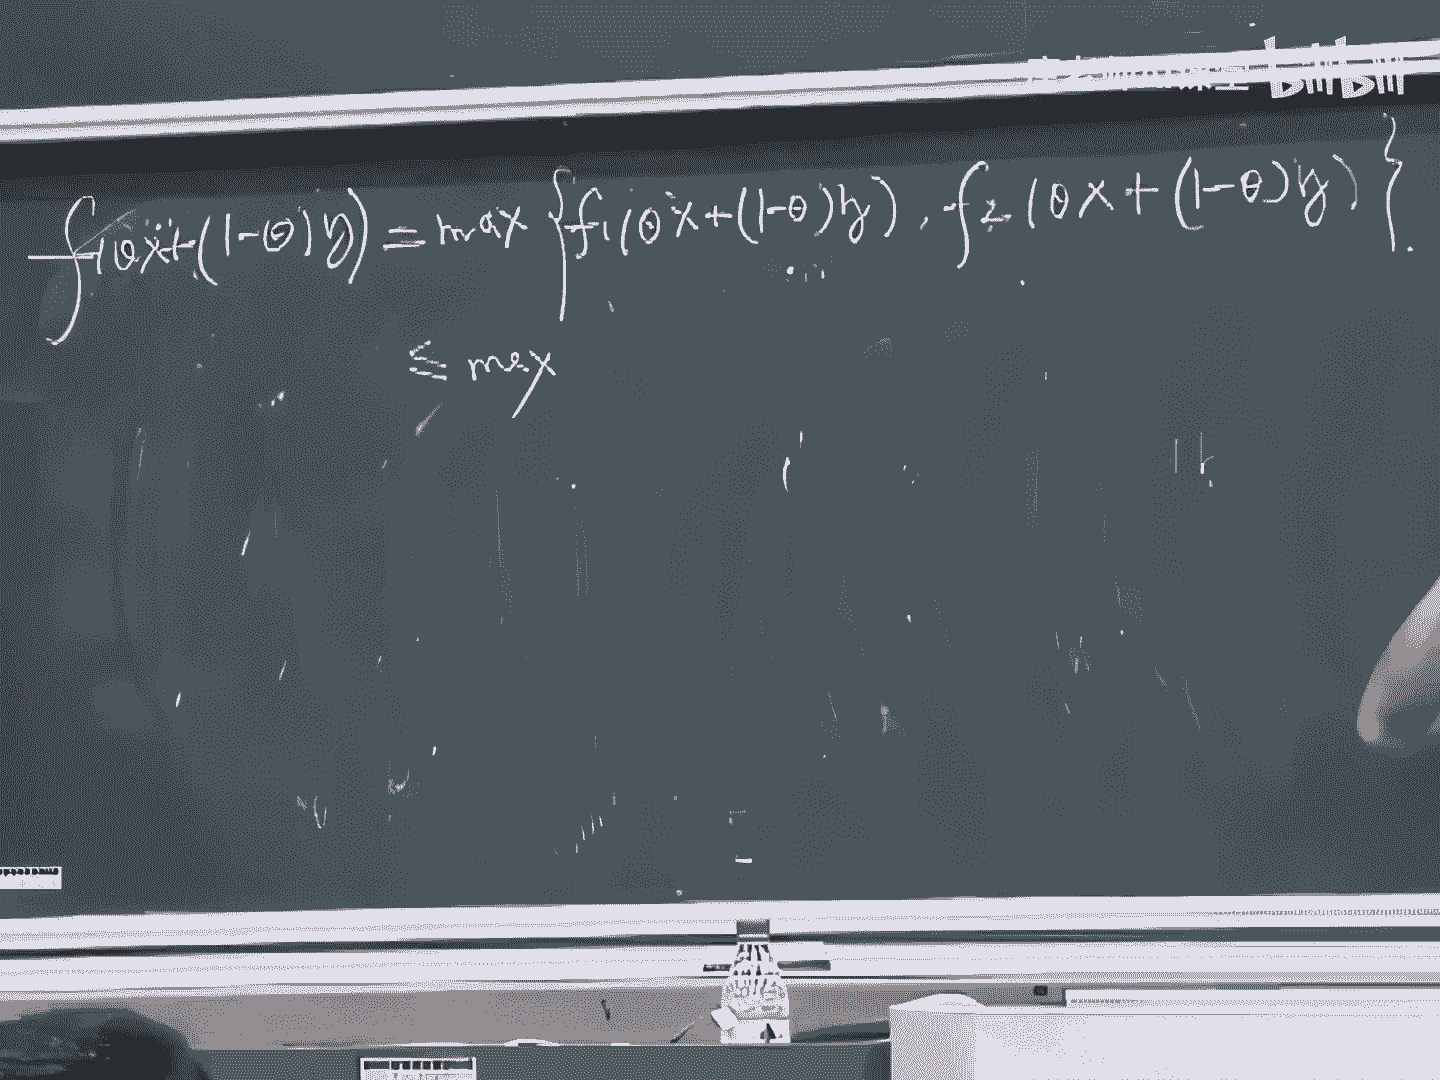 bilibili
f(θx+(1-θ)y) = max {f₁(θx+(1-θ)y), f₂(θx+(1-θ)y)}.
≤ max